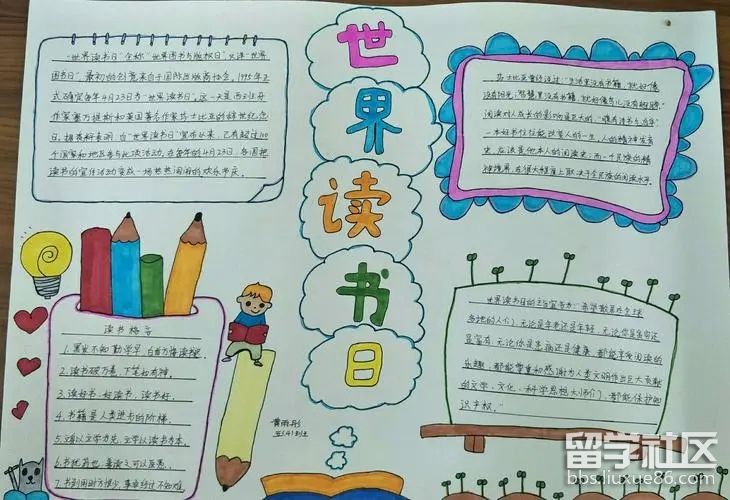 世界读书日
"世界读书日"全称"世界图书与版权日",又译"世界
图书日",最初的创意来自于国际出版商协会。1995年正
式确定每年4月23日为"世界读书日"。这一天是西班牙
作家塞万提斯和英国著名作家莎士比亚的辞世纪念
日。据资料表明,自"世界读书日"宣布以来,已有超过100
个国家和地区参与此项活动。在每年的4月23日,各国把
读书的宣传活动变成一场热热闹闹的欢乐节庆。
莎士比亚曾经说过:"生活里没有书籍,就好像
没有阳光;智慧里没有书籍,就好像鸟儿没有翅膀。"
阅读对人成长的影响是巨大的,
一本好书往往能改变人的一生。人的精神发育
史,应该是他本人的阅读史;而一个民族的精
神境界,在很大程度上取决于全民族的阅读水平。
读书格言
1.黑发不知勤学早,白首方悔读书迟。
2.读书破万卷,下笔如有神。
3.读好书,好读书,读书好。
4.书籍是人类进步的阶梯。
5.立身以立学为先,立学以读书为本。
6.书犹药也,善读之可以医愚。
7.书到用时方恨少,事非经过不知难。
世界读书日的主旨宣言为:"希望散居在全球
各地的人们,无论是年老还是年轻,无论你是贫穷还
是富有,无论你是患病还是健康,都能享受阅读的
乐趣,都能尊重和感谢为人类文明作出巨大贡献
的文学、文化、科学思想大师们,都能保护知
识产权。"
黄雨彤
五(4)班
留学社区
bbs.liuxue86.com